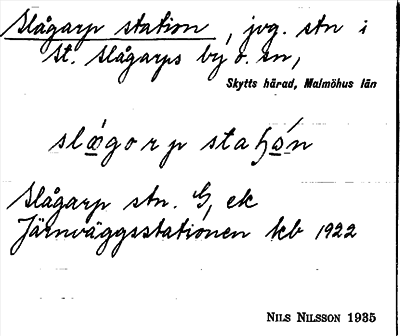 Slågarp station, jvg. stn i
St. Slågarps by o. sn,
Skytts härad, Malmöhus län
slǻgorp staɧón
Slågarp stn. G, ek
Järnväggsstationen kb 1922
NILS NILSSON 1935